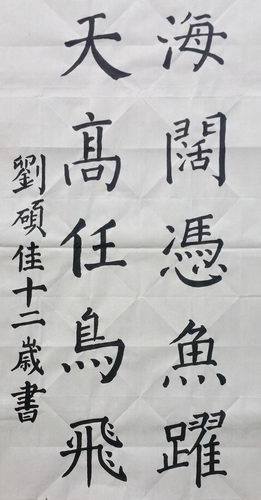 海闊憑魚躍
天高任鳥飛
劉碩佳十二歲書